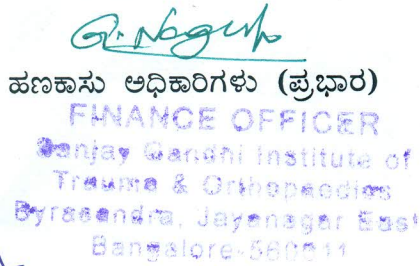 ಹಣಕಾಸು ಅಧಿಕಾರಿಗಳು (ಪ್ರಭಾರ)
FINANCE OFFICER
Sanjay Gandhi Institute of
Trauma & Orthopaedics
Byrasandra, Jayanagar East
Bangalore-560011